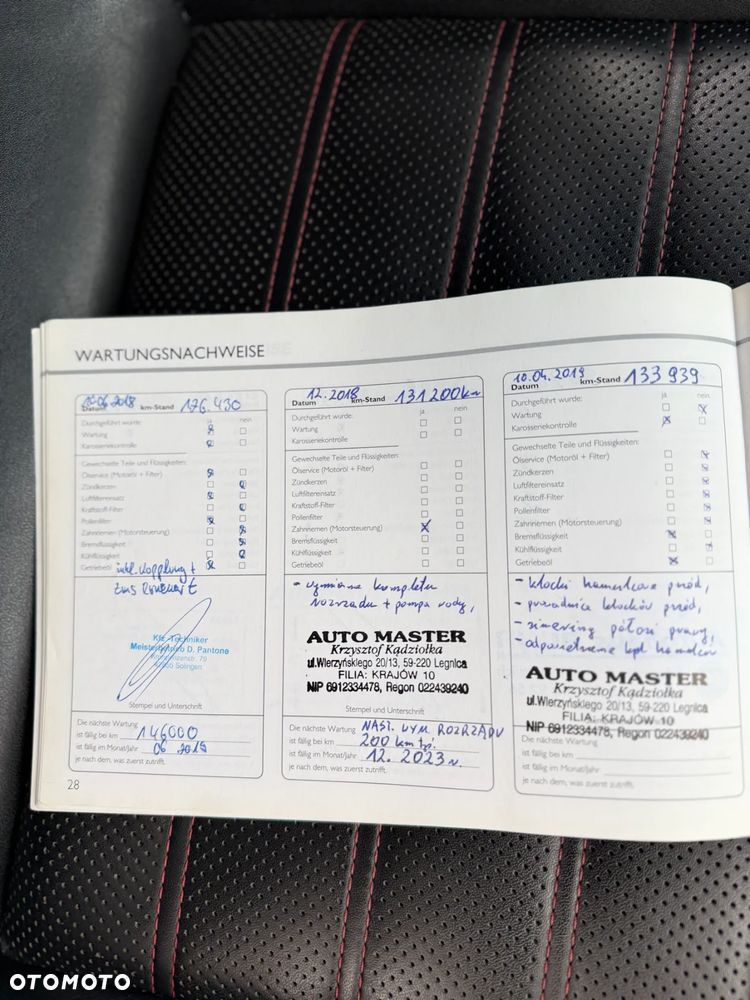 WARTUNGSNACHWEISE
10-06-2018
Datum
km-Stand 126.430
Durchgeführt wurde: ja nein
Wartung
Karosseriekontrolle
Gewechselte Teile und Flüssigkeiten:
Ölservice (Motoröl + Filter)
Zündkerzen
Luftfiltereinsatz
Kraftstoff-Filter
Pollenfilter
Zahnriemen (Motorsteuerung)
Bremsflüssigkeit
Kühlflüssigkeit
Getriebeöl
inkl. Kopplung +
Kfz-Techniker
Meisterbetrieb D. Pantone
Solingen
Stempel und Unterschrift
Die nächste Wartung
ist fällig bei km 146000
ist fällig im Monat/Jahr 06 2019
je nach dem, was zuerst zutrifft.
28
12.2018
Datum
km-Stand 131200km
Durchgeführt wurde: ja nein
Wartung
Karosseriekontrolle
Gewechselte Teile und Flüssigkeiten:
Ölservice (Motoröl + Filter)
Zündkerzen
Luftfiltereinsatz
Kraftstoff-Filter
Pollenfilter
Zahnriemen (Motorsteuerung)
Bremsflüssigkeit
Kühlflüssigkeit
Getriebeöl
- wymiana kompletu
rozrządu + pompa wody,
AUTO MASTER
Krzysztof Kądziołka
ul.Wierzyńskiego 20/13, 59-220 Legnica
FILIA: KRAJÓW 10
NIP 6912334478, Regon 022439240
Stempel und Unterschrift
Die nächste Wartung NAST. WYM. ROZRZĄDU
ist fällig bei km 200 km tyś.
ist fällig im Monat/Jahr 12. 2023 r.
je nach dem, was zuerst zutrifft.
10.04.2019
Datum
km-Stand 133 939
Durchgeführt wurde: ja nein
Wartung
Karosseriekontrolle
Gewechselte Teile und Flüssigkeiten:
Ölservice (Motoröl + Filter)
Zündkerzen
Luftfiltereinsatz
Kraftstoff-Filter
Pollenfilter
Zahnriemen (Motorsteuerung)
Bremsflüssigkeit
Kühlflüssigkeit
Getriebeöl
- klocki hamulcowe przód,
- prowadnice klocków przód,
- simering półosi prawy,
- odpowietrzenie kpl hamulców
AUTO MASTER
Krzysztof Kądziołka
ul.Wierzyńskiego 20/13, 59-220 Legnica
FILIA: KRAJÓW 10
NIP 6912334478, Regon 022439240
Die nächste Wartung
ist fällig bei km
ist fällig im Monat/Jahr
je nach dem, was zuerst zutrifft.
OTOMOTO